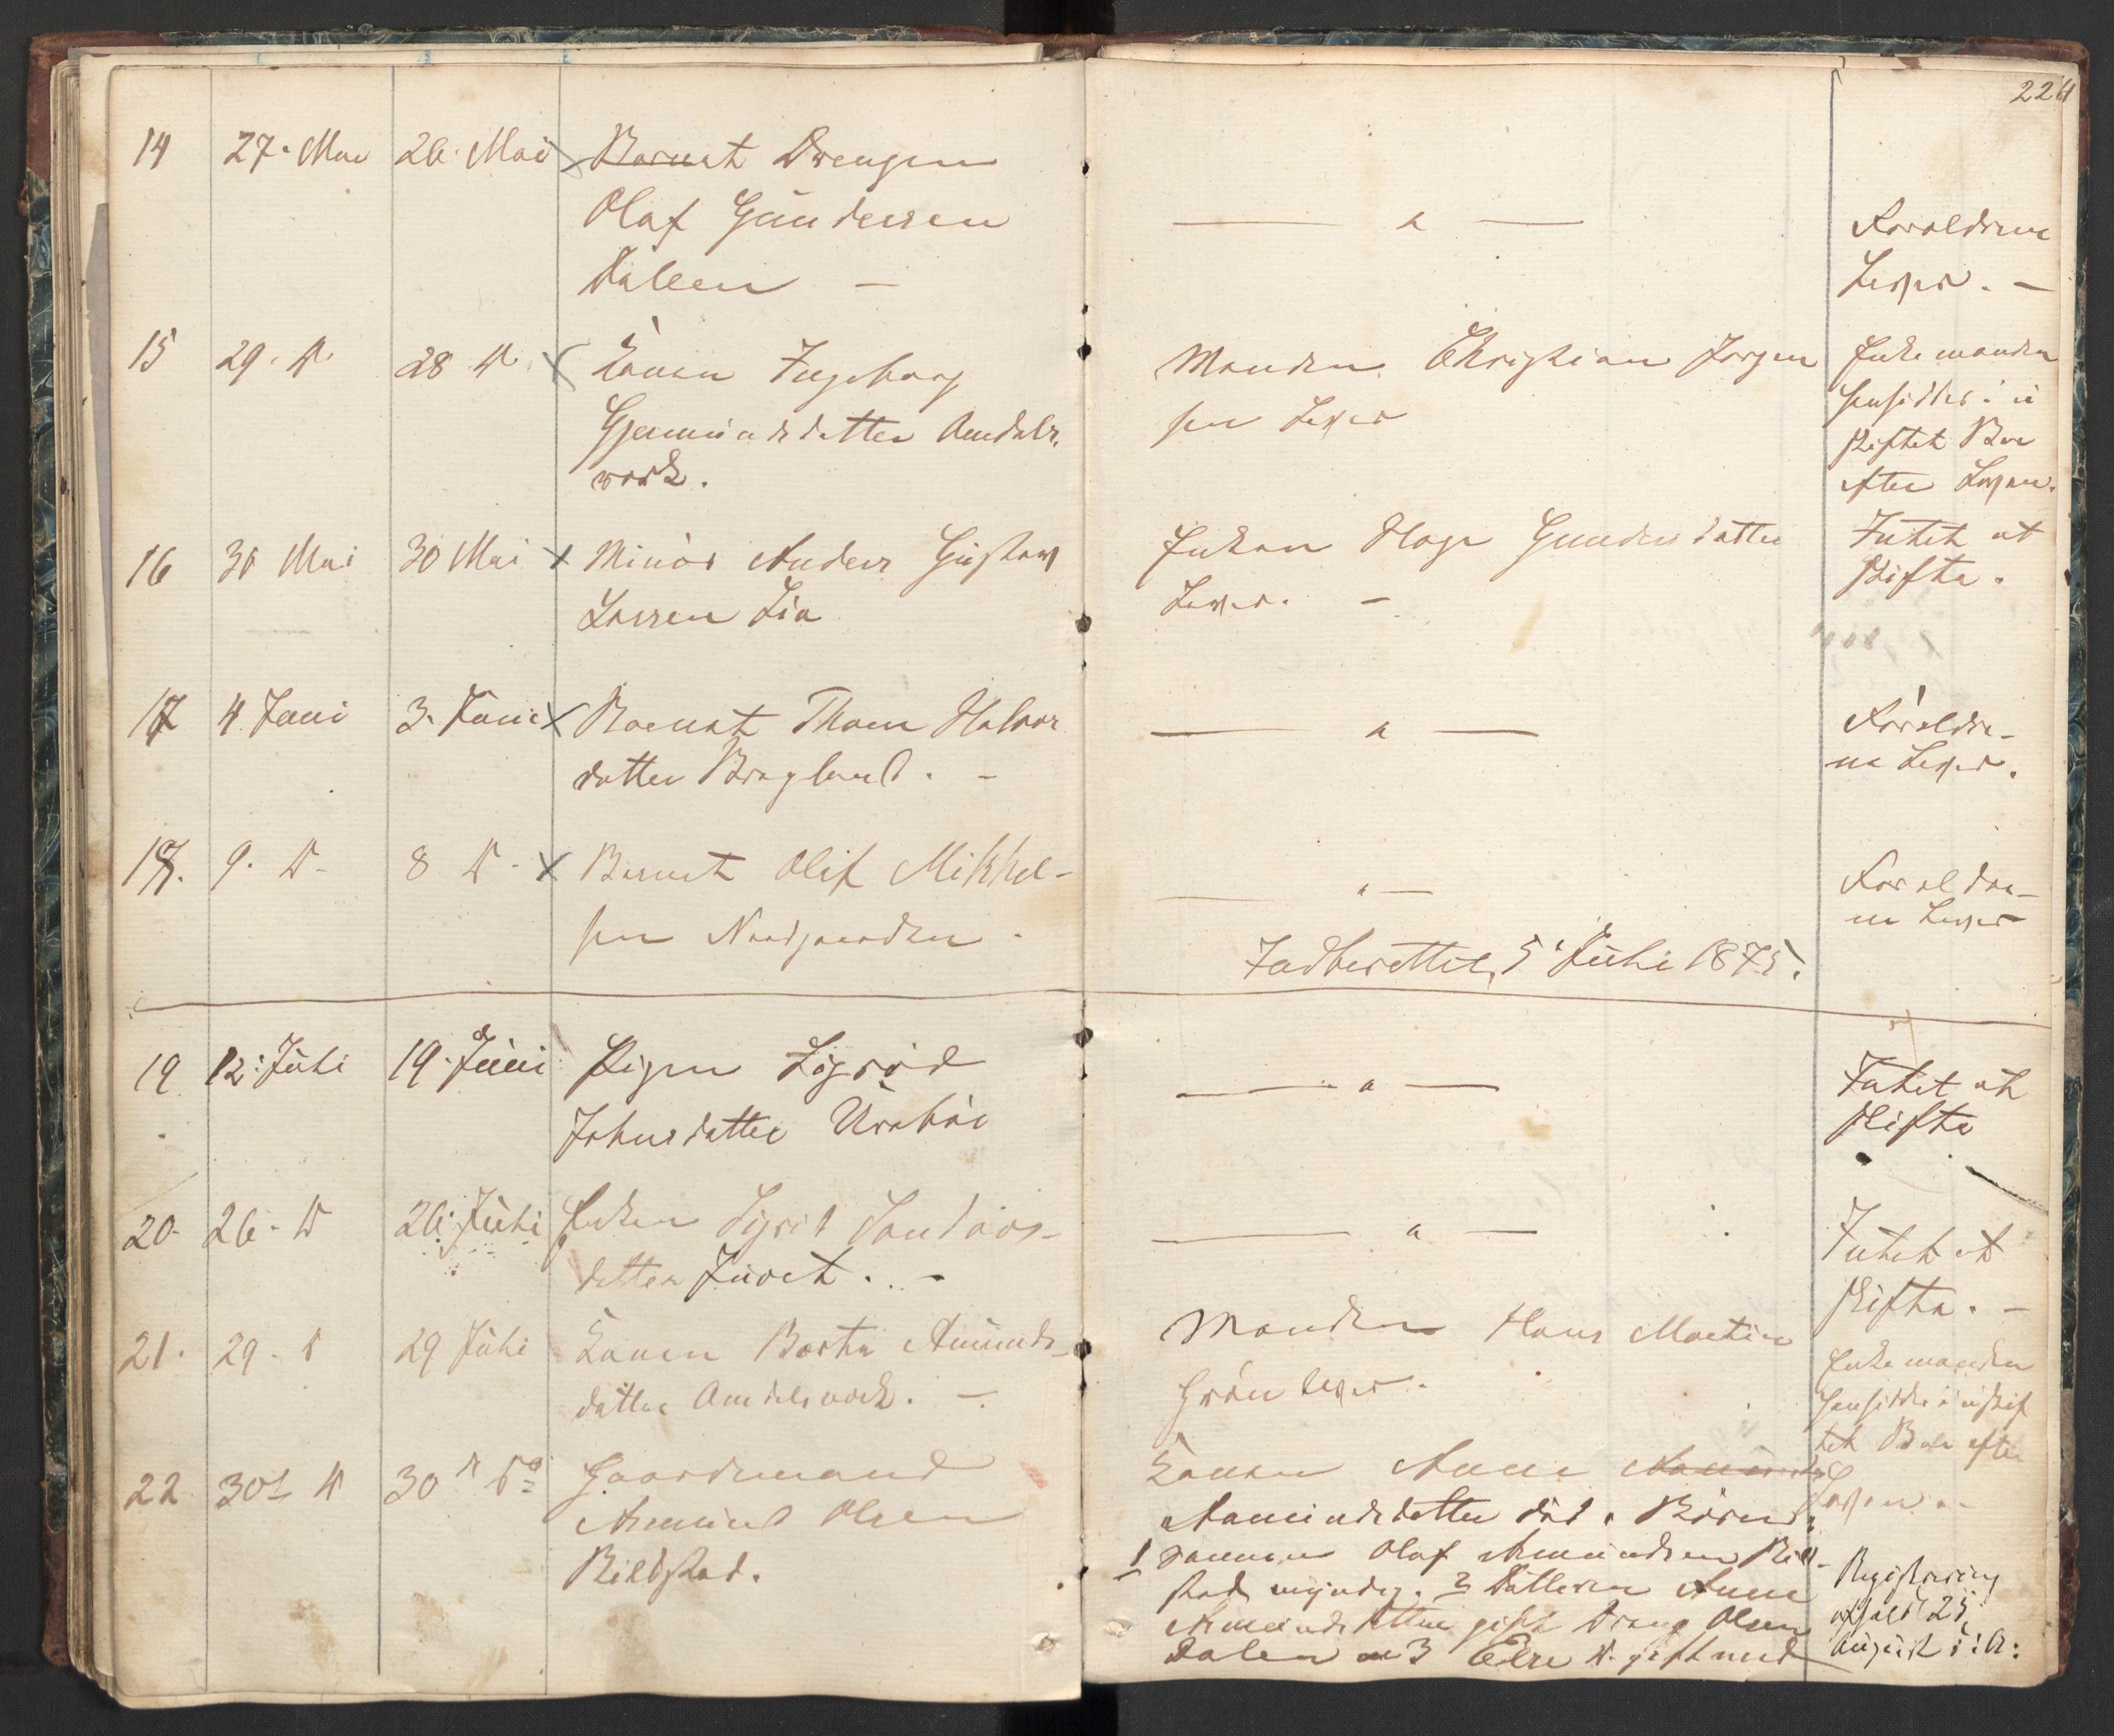 224
14 27. Mai 26. Mai Barnet Drengen
Olaf Gundersen
Dalen —
— " —
Forældrene
Lever. —
15 29. D. 28 D. Konen Ingeborg
Gjermundsdatter Omdals-
værk.
Manden Christian Jørgen
sen Lever
Enkemanden
hensidder i u
skiftet Boe
efter Loven.
16 30 Mai 30 Mai Minør Anders Gustav
Larsen Lia
Enken Hæge Gundersdatter
Lever. —
Intet at
skifte.
17 4 Juni 3. Juni Barnet Thone Halvor
datter Bragland. —
— " —
Foreldre-
ne Lever.
18. 9. D. 8 D. Barnet Olif Mikkel-
sen Nordgaarden.
— " —
Foreldre-
ne Lever
Indberettet, 5 Juli 1875.
19 12. Juli 19. Juni Pigen Sigrid
Johnsdatter Urabøe
— " —
Intet at
skifte
20. 26. D 26. Juli Enken Sigrid Sondres-
datter Juvet. —
— " —
Intet at
skifte. —
21. 29. D 29 Juli Konen Borta Amunds-
datter Omdalsværk. —
Manden Hans Martin
Grøn lever.
Enkemanden
hensidder i uskif
tet Boe efter
Loven. —
22 30 D 30 D Gaardmand
Aamund Olsen
Rildstad.
Konen Anne Aamunds
Aamundsdatter død. Børn:
1 Sønnen Olaf Amundsen Rild-
stad myndig. 2 Datteren Anne
Amundsdatter gift Drang Olsen
Dalen 3 Else D. gift med
Registrering
afholdt 25
August d. A: